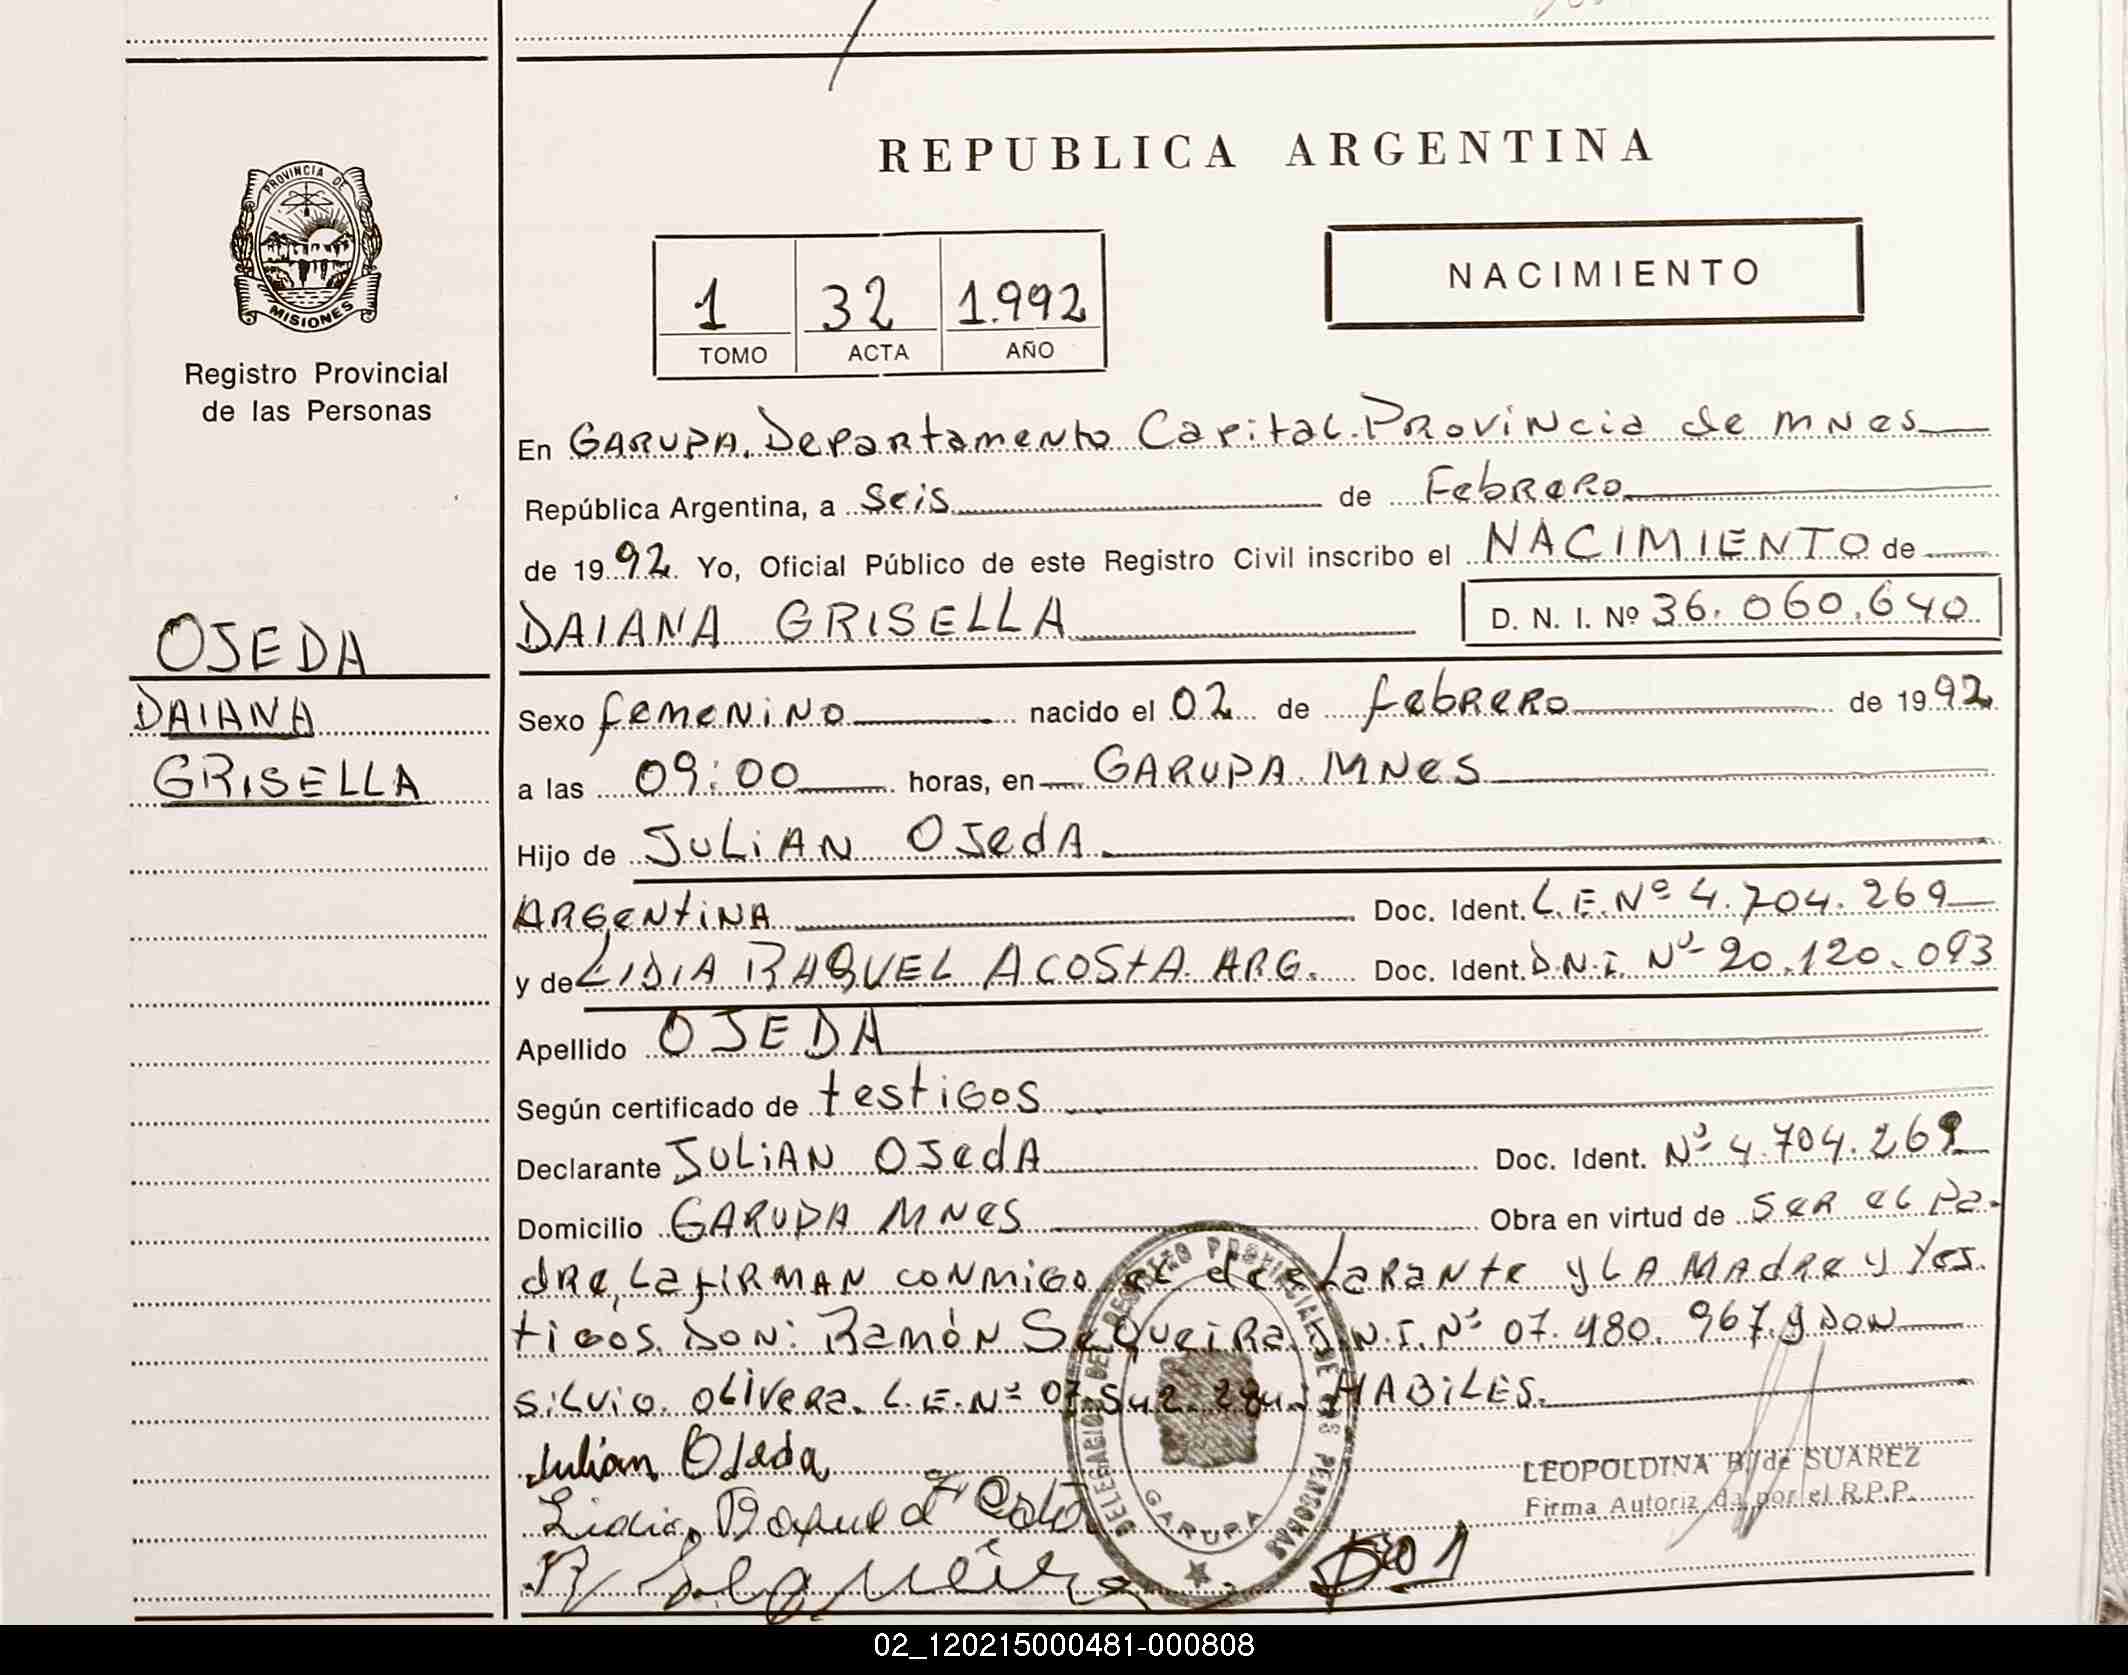 PROVINCIA DE
MISIONES
Registro Provincial
de las Personas
OJEDA
DAIANA
GRISELLA
REPUBLICA ARGENTINA
1 32 1.992
TOMO ACTA AÑO
NACIMIENTO
En GARUPA. Departamento Capital. Provincia de MNes
República Argentina, a Seis de Febrero
de 1992. Yo, Oficial Público de este Registro Civil inscribo el NACIMIENTO de
DAIANA GRISELLA D. N. I. Nº 36.060.640
Sexo femenino nacido el 02 de febrero de 1992
a las 09:00 horas, en GARUPA. MNes
Hijo de Julian Ojeda
Argentina Doc. Ident. L.E. Nº 4.704.269
y de LIDIA RAQUEL ACOSTA. ARG. Doc. Ident. D.N.I. Nº 20.120.093
Apellido OJEDA
Según certificado de testigos
Declarante Julian Ojeda Doc. Ident. Nº 4.704.269
Domicilio GARUPA MNes Obra en virtud de ser el Pa-
dre, La firman conmigo el declarante y LA Madre y Tes-
tigos. Don: Ramón Sequeira D.N.I. Nº 07.480.967. y Don
Silvio Olivera. L.E. Nº 07.542.284. HABILES.
Julian Ojeda
Lidia Raquel Acosta
R Sequeira
DELEGACION DEL REGISTRO PROVINCIAL DE LAS PERSONAS
GARUPA
LEOPOLDINA B. de SUAREZ
Firma Autorizada por el R.P.P.
02_120215000481-000808